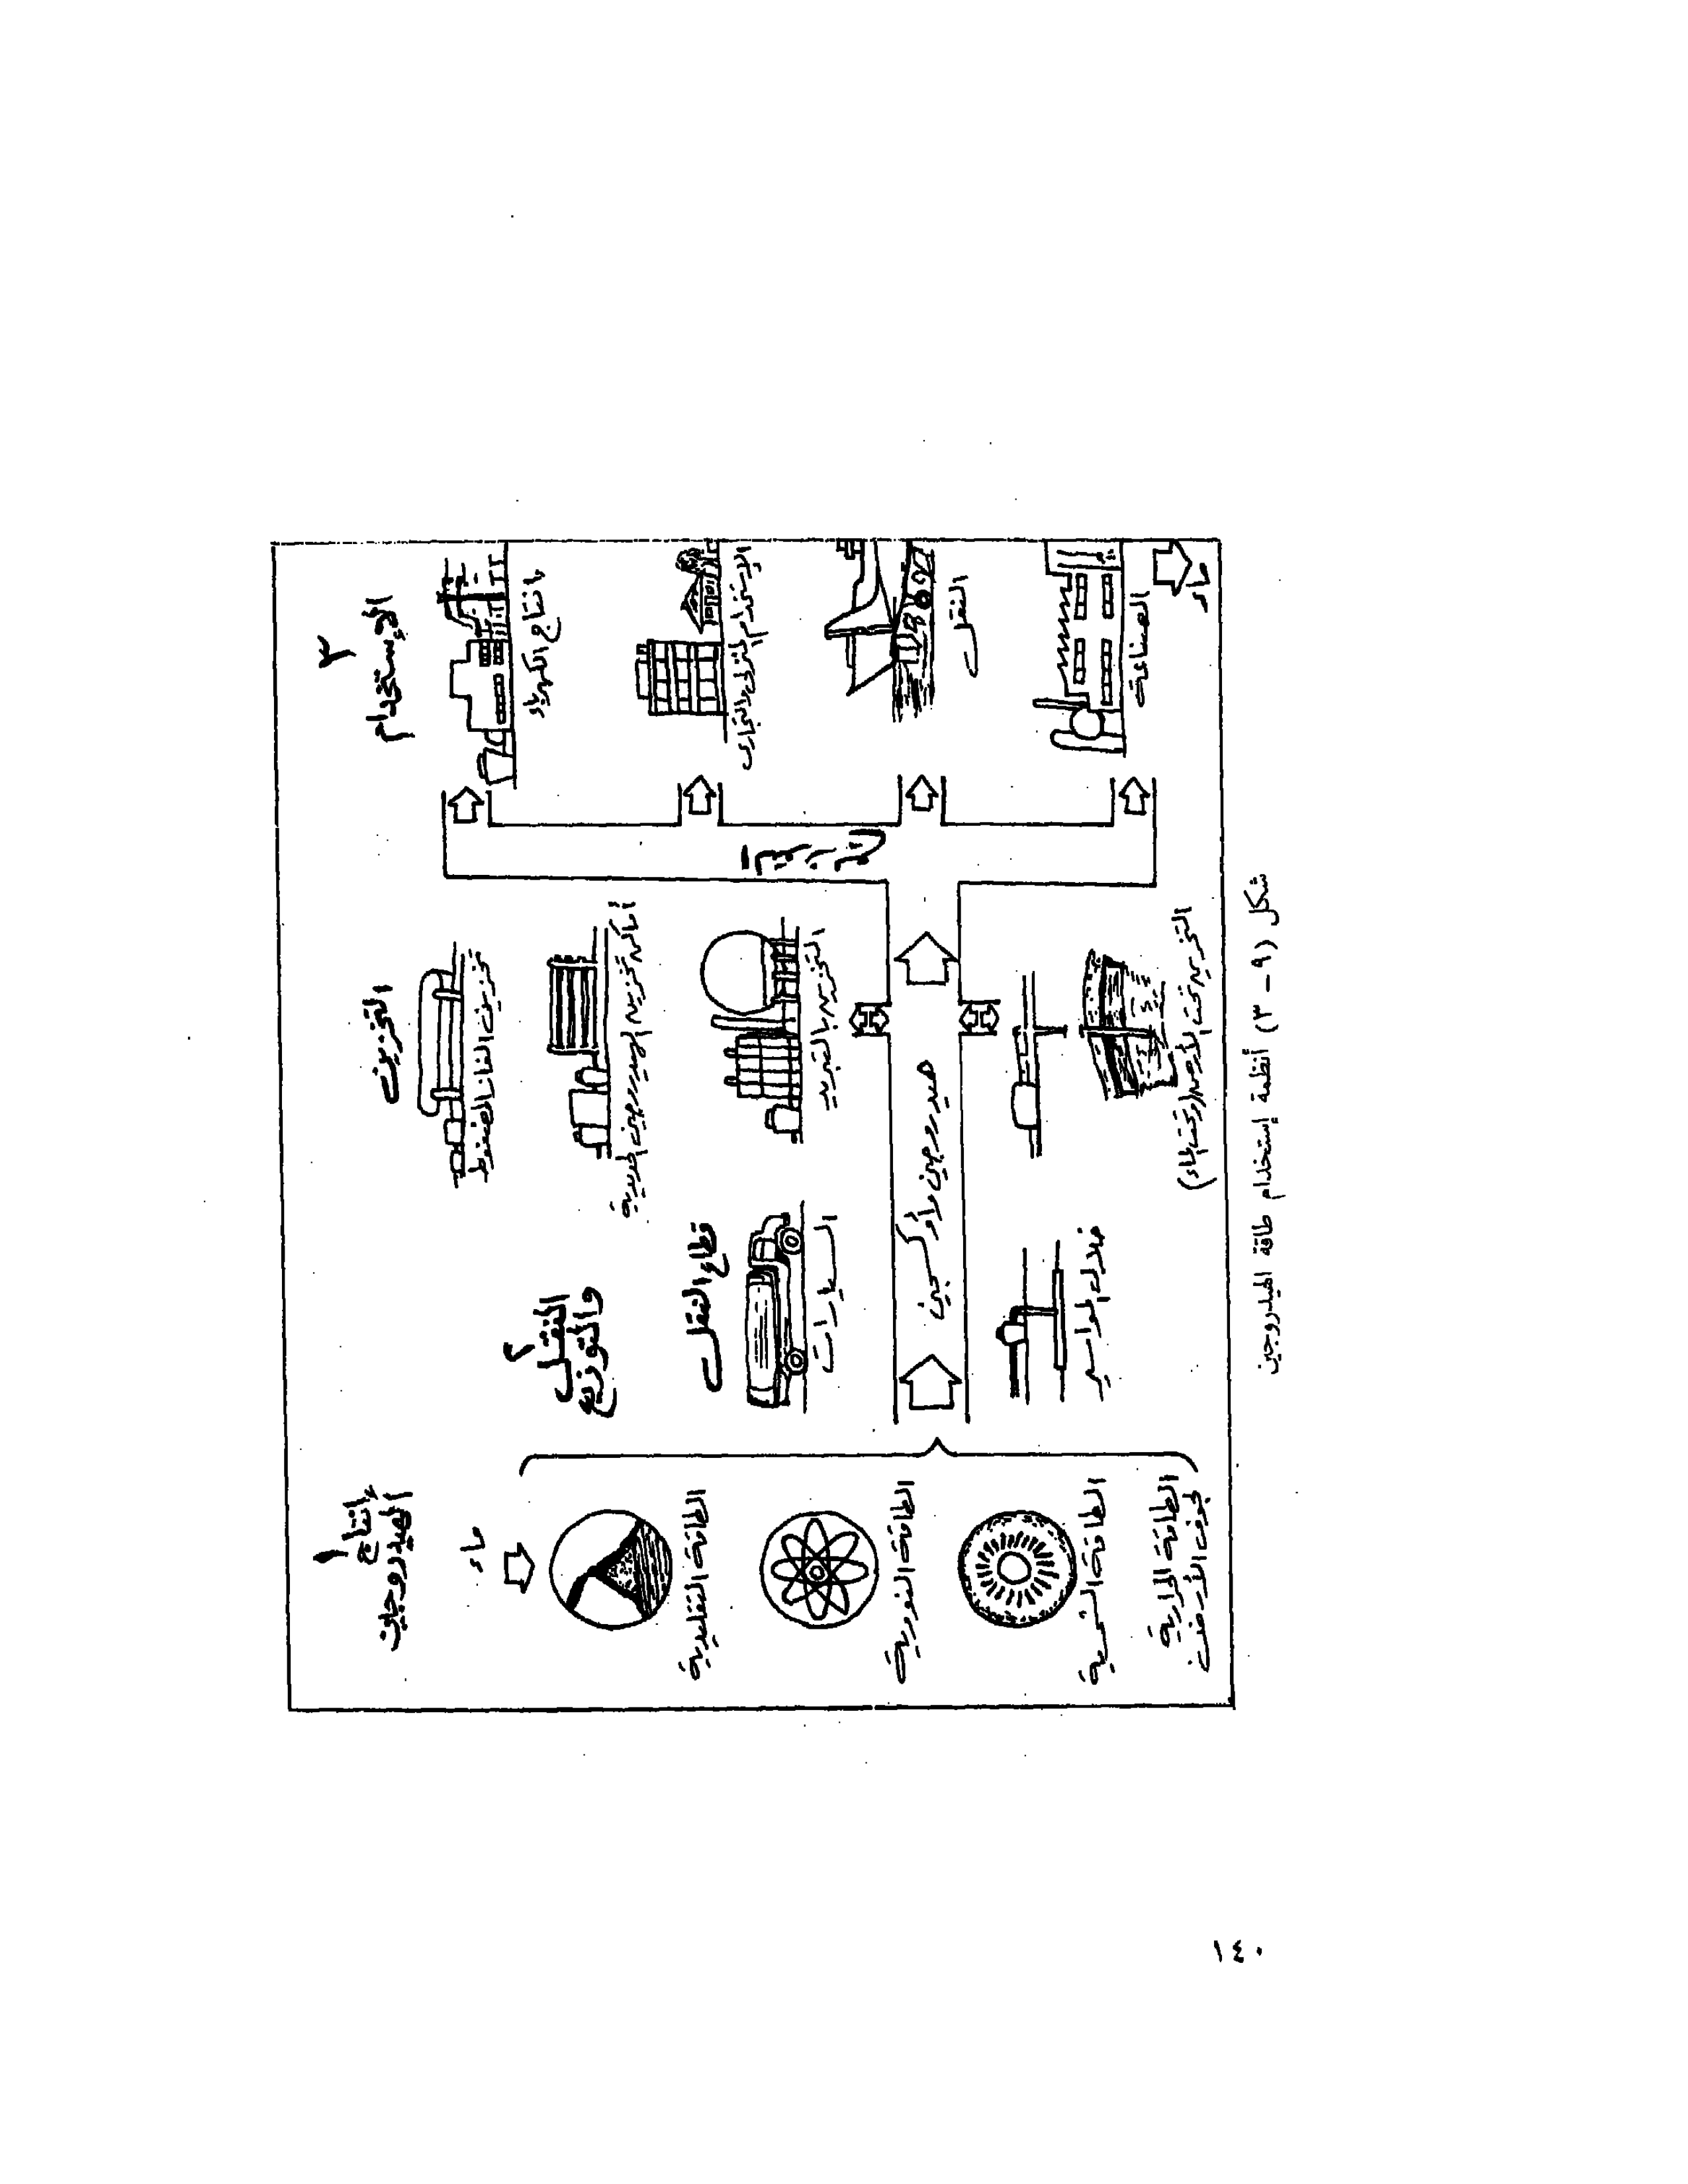 ١
إنتاج
الهيدروجين
ماء
الطاقة التقليدية
الطاقة النووية
الطاقة الشمسية
الطاقة الحرارية
لجوف الأرض
٢
النقل
والتوزيع
قطاع النقل
السيارات
هيدروجين وأوكسجين
خلال المواسير
التخزين
تخزين الغاز المضغوط
أماكن تخزين الهيدروجين الحديدية
التخزين بالتبريد
التخزين تحت الأرض (وتحت الماء)
٣
الإستخدام
إنتاج الكهرباء
الإستخدام المنزلى والتجارى
النقل
الصناعة
ماء
شكل (٩ - ٣) أنظمة إستخدام طاقة الهيدروجين
١٤٠